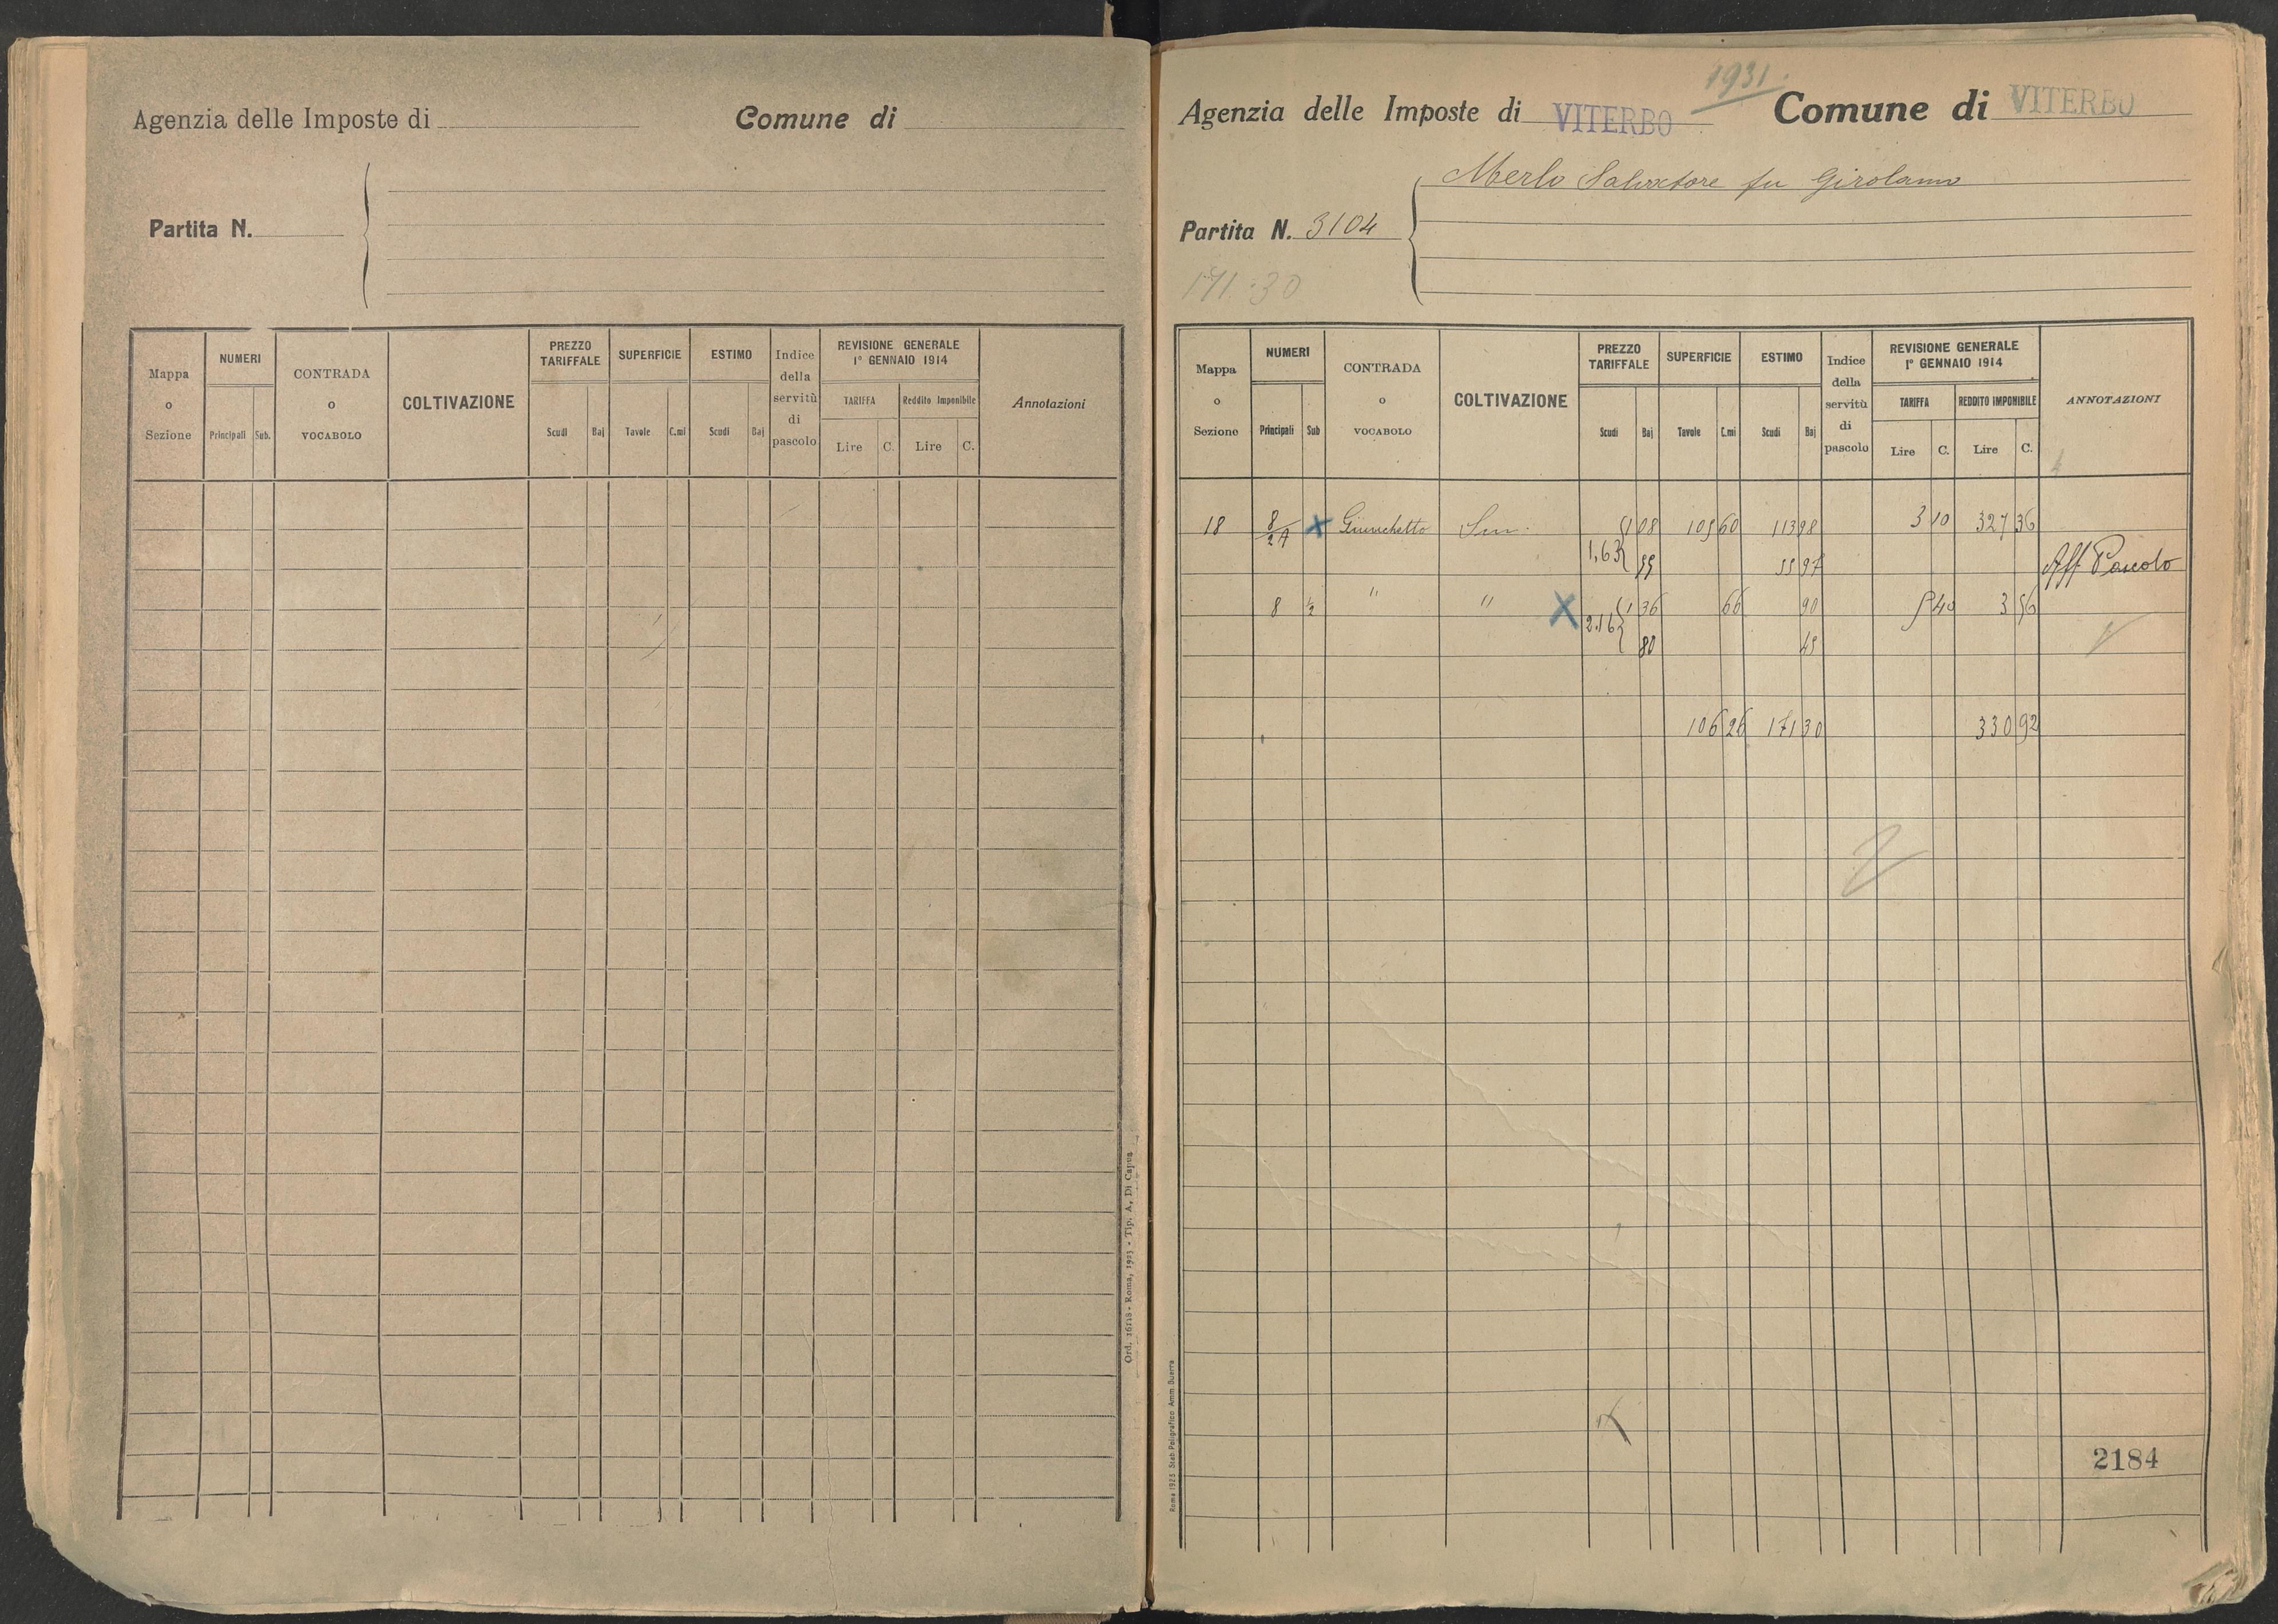 Agenzia delle Imposte di
Comune di
Partita N.
Mappa o Sezione
NUMERI
Principali
Sub.
CONTRADA o VOCABOLO
COLTIVAZIONE
PREZZO TARIFFALE
Scudi
Baj
SUPERFICIE
Tavole
C.mi
ESTIMO
Scudi
Baj
Indice della servitù di pascolo
REVISIONE GENERALE 1° GENNAIO 1914
TARIFFA
Reddito Imponibile
Lire
C.
Lire
C.
Annotazioni
Ord. 16118 - Roma, 1923 - Tip. A. Di Capua
1931.
Agenzia delle Imposte di VITERBO
Comune di VITERBO
Merlo Salvatore fu Girolamo
Partita N. 3104
171:30
Mappa o Sezione
NUMERI
Principali
Sub
CONTRADA o VOCABOLO
COLTIVAZIONE
PREZZO TARIFFALE
Scudi
Baj
SUPERFICIE
Tavole
C.mi
ESTIMO
Scudi
Baj
Indice della servitù di pascolo
REVISIONE GENERALE 1° GENNAIO 1914
TARIFFA
REDDITO IMPONIBILE
Lire
C.
Lire
C.
ANNOTAZIONI
18 8/2A X Giunchetto Sem. 1 08 105 60 113 98 3 10 327 36
1,63 55 55 97 Aff Pascolo
8 1/2 " " X 1 36 66 90 5 40 3 56
2.16 80 45
106 26 171 30 330 92
Roma 1925 Stab. Poligrafico Amm. Guerra
2184